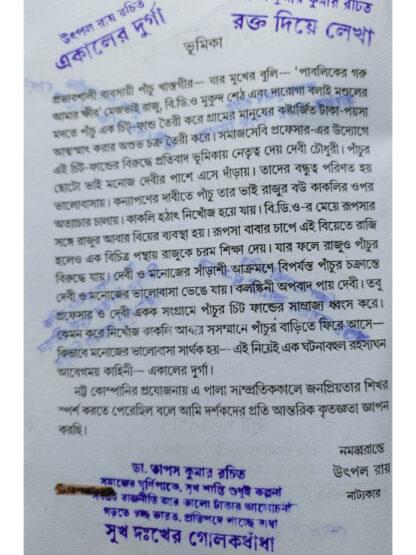 উৎপল রায় রচিত
একালের দুর্গা
কুমার রচিত
রক্ত দিয়ে লেখা
ভূমিকা
প্রভাবশালী ব্যবসায়ী পাঁচু খাস্তগীর— যার মুখের বুলি— 'পাবলিকের গরু
আমার ক্ষীর' মেজভাই রাজু, বি.ডি.ও মুকুন্দ শেঠ এবং দারোগা বলাই মণ্ডলের
মদতে পাঁচু এক চিট্-ফান্ড তৈরী করে গ্রামের মানুষের কষ্টার্জিত টাকা-পয়সা
আত্মস্মাৎ করার অশুভ চক্র তৈরী করে। সমাজসেবি প্রফেসার-এর উদ্যোগে
এই চিট-ফান্ডের বিরুদ্ধে প্রতিবাদ ভূমিকায় নেতৃত্ব দেয় দেবী চৌধুরী। পাঁচুর
ছোটো ভাই মনোজ দেবীর পাশে এসে দাঁড়ায়। তাদের বন্ধুত্ব পরিণত হয়
ভালোবাসায়। কন্যাপণের দাবীতে পাঁচু তার ভাই রাজুর বউ কাকলির ওপর
অত্যাচার চালায়। কাকলি হঠাৎ নিখোঁজ হয়ে যায়। বি.ডি.ও-র মেয়ে রূপসার
সঙ্গে রাজুর আবার বিয়ের ব্যবস্থা হয়। রূপসা বাবার চাপে এই বিয়েতে রাজি
হলেও এক বিচিত্র পন্থায় রাজুকে চরম শিক্ষা দেয়। যার ফলে রাজুও পাঁচুর
বিরুদ্ধে যায়। দেবী ও মনোজের সাঁড়াশী আক্রমণে বিপর্যস্ত পাঁচুর চক্রান্তে
দেবী ও মনোজের ভালোবাসা ভেঙে যায়। কলঙ্কিনী অপবাদ পায় দেবী। তবু
প্রফেসার ও দেবী একক সংগ্রামে পাঁচুর চিট ফান্ডের সাম্রাজ্য ধ্বংস করে।
কেমন করে নিখোঁজ কাকলি আবার সসম্মানে পাঁচুর বাড়িতে ফিরে আসে—
কিভাবে মনোজের ভালোবাসা সার্থক হয়— এই নিয়েই এক ঘটনাবহুল রহস্যঘন
আবেগময় কাহিনী— একালের দুর্গা।
নট্ট কোম্পানির প্রযোজনায় এ পালা সাম্প্রতিককালে জনপ্রিয়তার শিখর
স্পর্শ করতে পেরেছিল বলে আমি দর্শকদের প্রতি আন্তরিক কৃতজ্ঞতা জ্ঞাপন
করছি।
নমস্কারান্তে
উৎপল রায়
নাট্যকার
ডা. তাপস কুমার রচিত
সমাজের ঘূর্ণিপাকে, সুখ শান্তি শুধুই কল্পনা
রাজনীতি আর কালো টাকার আলোচনা
গড়তে স্বচ্ছ ভারত, প্রতিপদে পাচ্ছে বাধা
সুখ দুঃখের গোলকধাঁধা